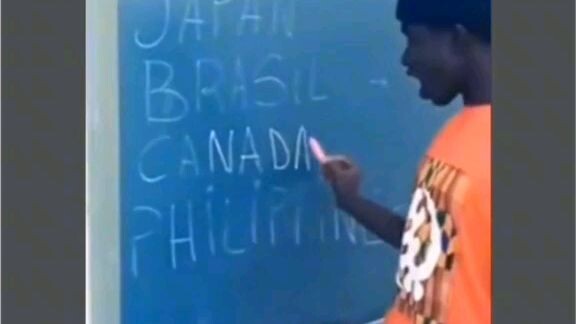 JAPAN
BRASIL -
CANADA
PHILIPPINE